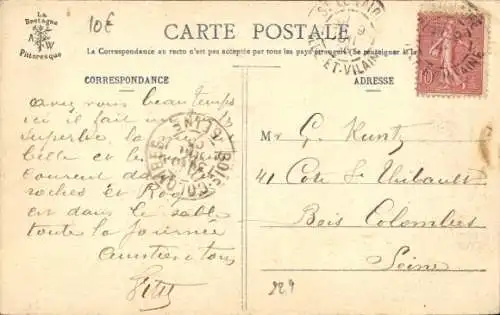 La
Bretagne
A W
Pittoresque
10€
CARTE POSTALE
La Correspondance au recto n'est pas acceptée par tous les pays étrangers (Se renseigner à la
CORRESPONDANCE
ADRESSE
avez vous beau temps
ici il fait un
Superbe la mer
belle et le
courent da
roches et Rog
est dans le sable
toute la journée
amitiés à tous
Mr G. Kuntz
41 Côte St Thibault
Bois Colombes
Seine
ET-VILAINE
BOIS-COLOMBES
SEINE
10